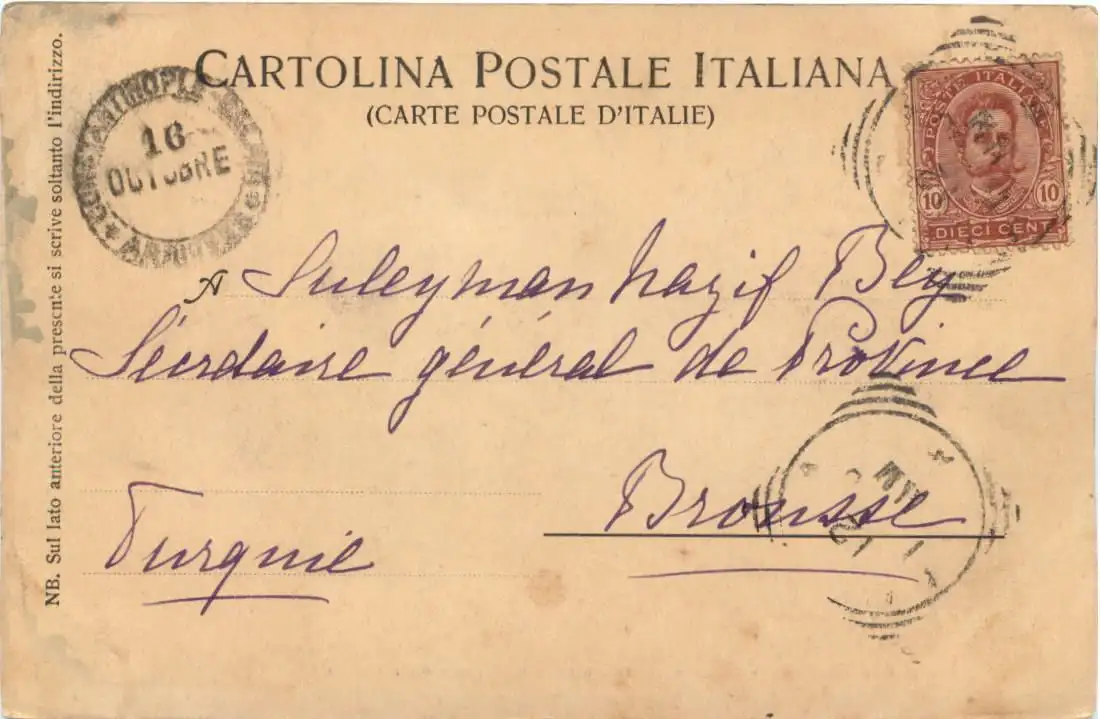 CARTOLINA POSTALE ITALIANA
(CARTE POSTALE D'ITALIE)
NB. Sul lato anteriore della presente si scrive soltanto l'indirizzo.
16
OCTOBRE
POSTE ITALIANE
10 10
DIECI CENT
A Suleyman Nazif Bey
Sécrétaire général de Province
Brousse
Turquie